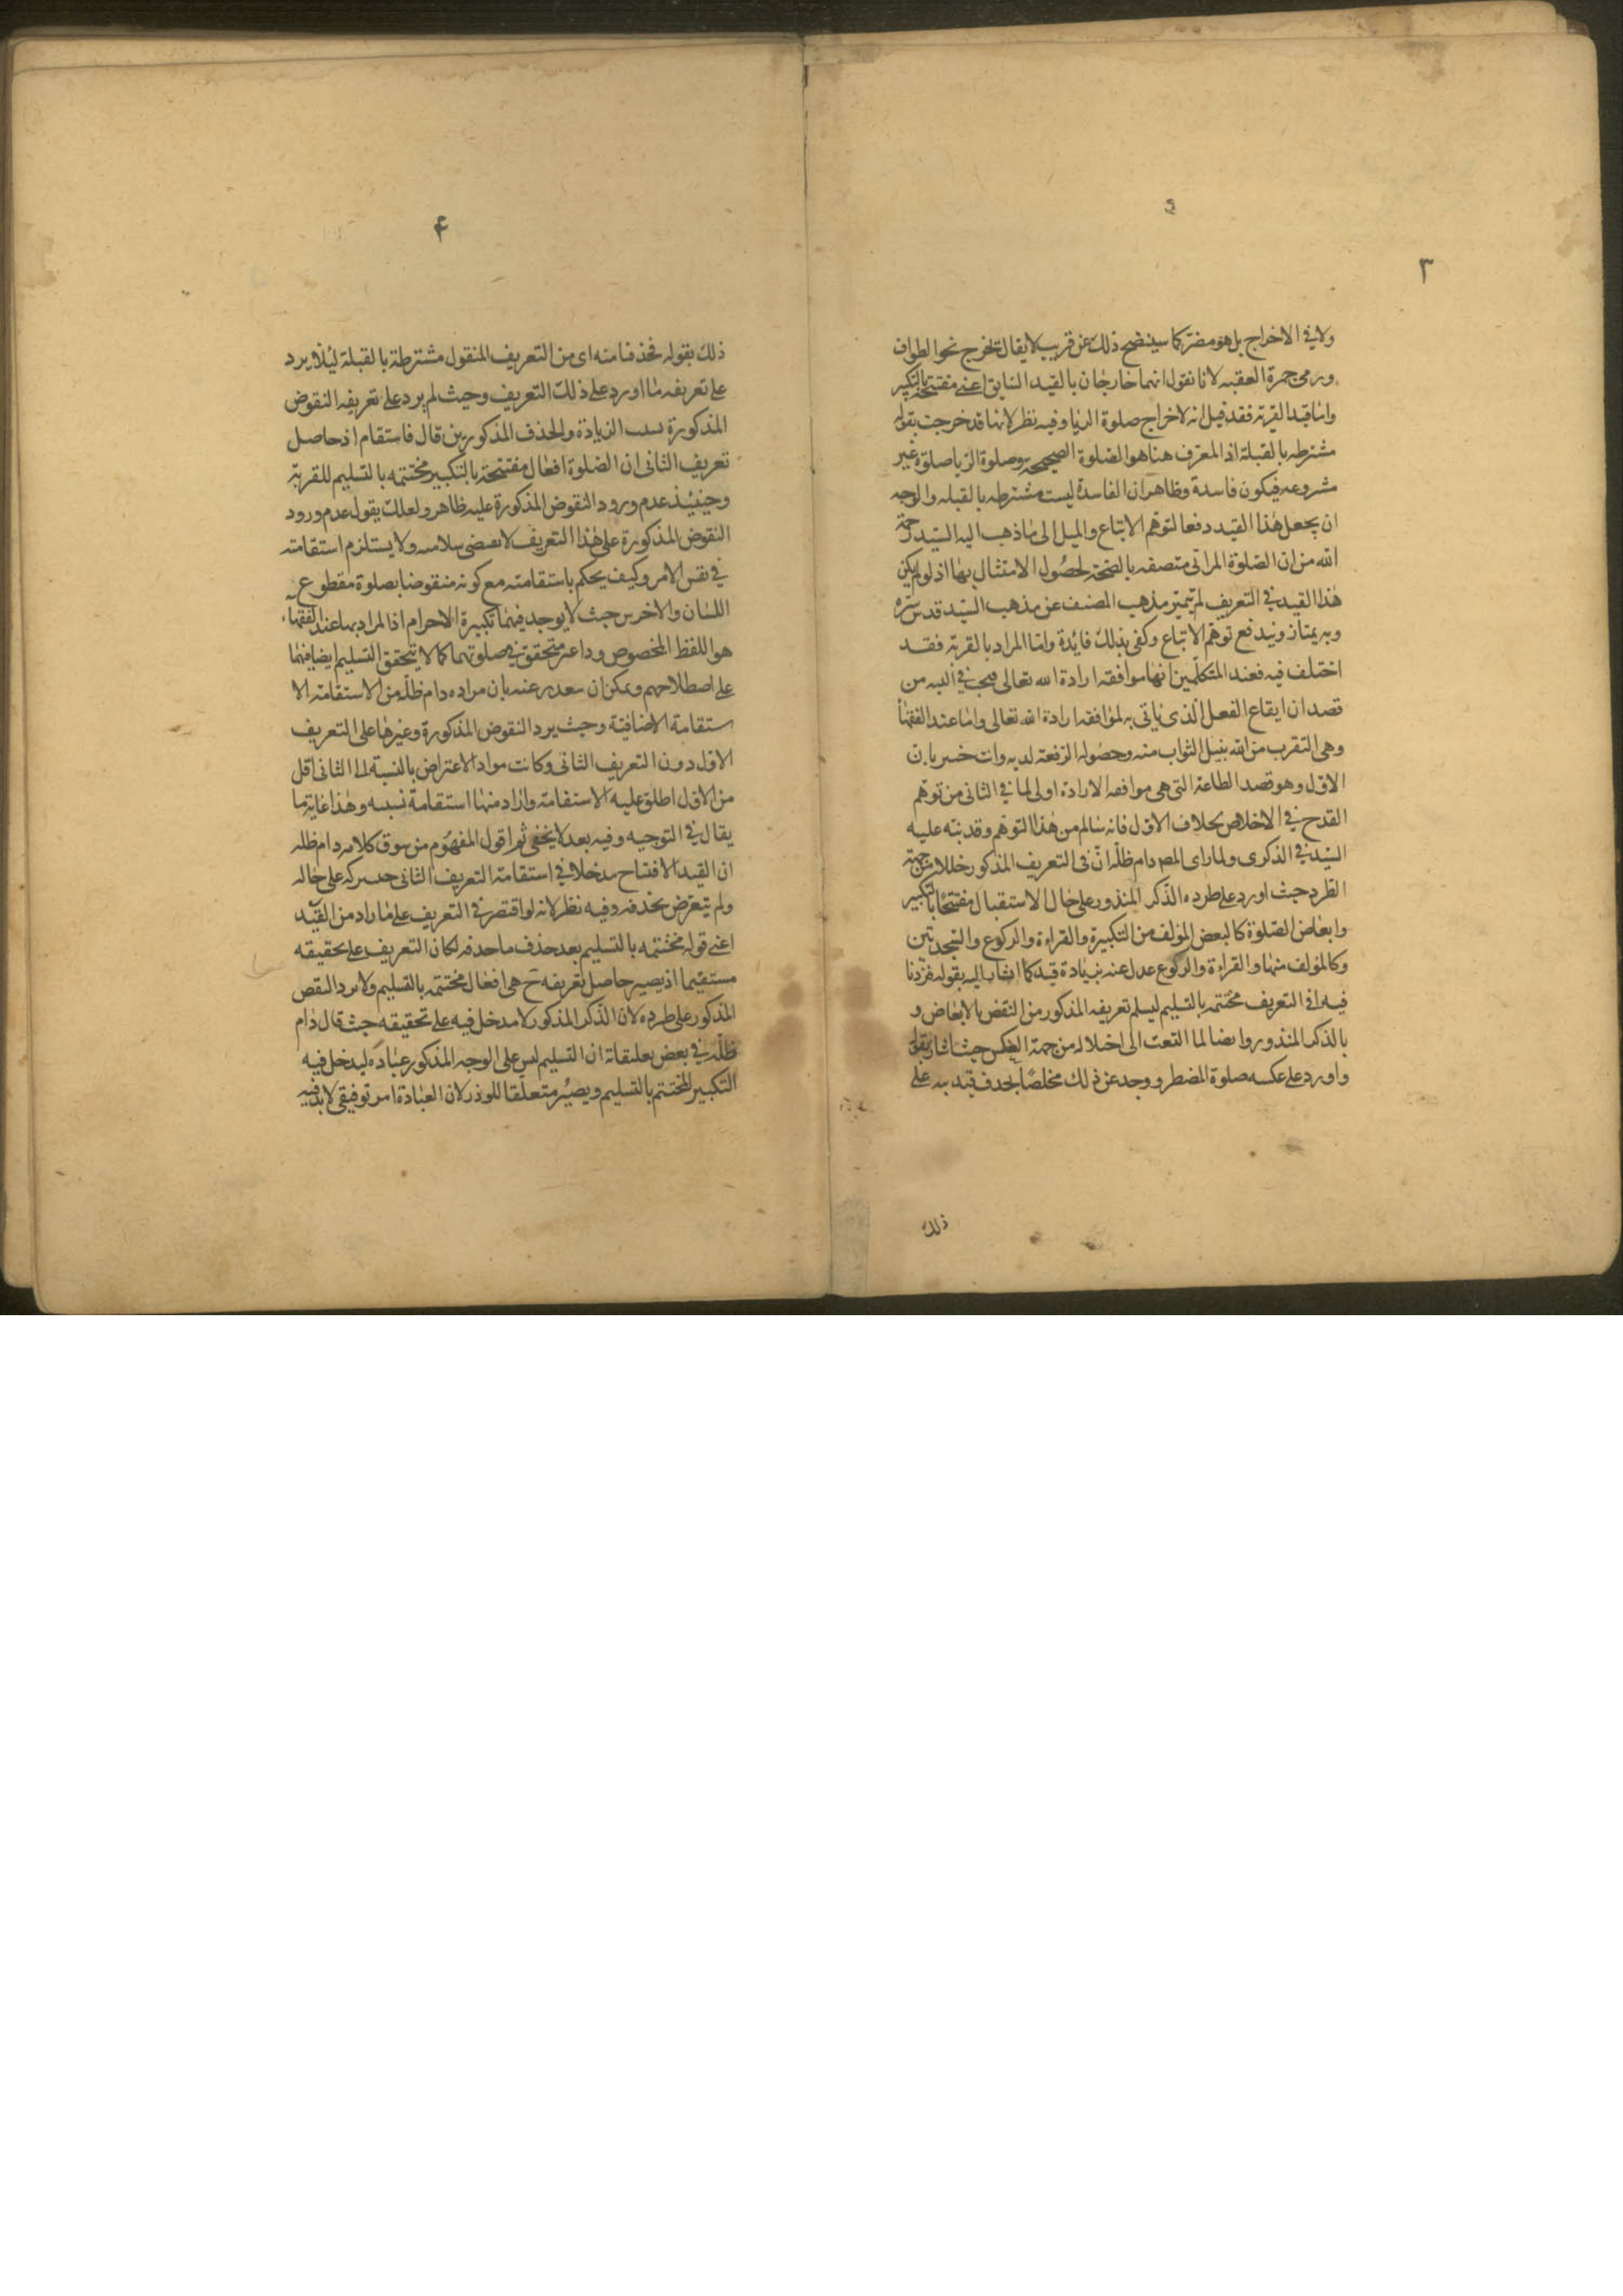 ٣
ولا في الاخراج بل هو مضر كما سيتضح ذلك عن قريب لا يقال يخرج نحو الطواف
ورمى جمرة العقبه لانا نقول انهما خارجان بالقيد السابق اعنى مفتتحة بالتكبير
واما قيد القربة فقد قيل انه لاخراج صلوة الريا وفيه نظر لانها قد خرجت بقوله
مشترطه بالقبلة اذ المعرف هنا هو الصلوة الصحيحة وصلوة الريا صلوة غير
مشروعه فيكون فاسدة وظاهر ان الفاسدة ليست مشترطه بالقبله والوجه
ان يجعل هذا القيد دفعا لتوهم الاتباع والميل الى ما ذهب اليه السيد رحمة
الله من ان الصلوة المرائى متصفه بالصحة لحصول الامتثال بها اذ لو لم يكن
هذا القيد في التعريف لم يتميز مذهب المصنف عن مذهب السيد قدس سره
وبه يمتاز ويندفع توهم الاتباع وكفى بذلك فائدة واما المراد بالقربة فقد
اختلف فيه فعند المتكلمين انها موافقه ارادة الله تعالى فيجب في النيه من
قصد ان ايقاع الفعل الذى ياتى به لموافقه ارادة الله تعالى واما عند الفقهاء
وهى التقرب من الله بنيل الثواب منه وحصول الرفعة لديه وانت خبير بان
الاول وهو قصد الطاعة التى هى موافقه الارادة اولى لما في الثانى من توهم
القدح في الاخلاص بخلاف الاول فانه سالم من هذا التوهم وقد نبه عليه
السيد في الذكرى ولما راى المصـ دام ظله ان فى التعريف المذكور خللا من جهة
الطرد حيث اورد على طرده الذكر المنذور على حال الاستقبال مفتتحا بالتكبير
وابعاض الصلوة كالبعض المؤلف من التكبيرة والقراءة والركوع والسجدتين
وكالمؤلف منها والقراءة والركوع عدل عنه بزيادة قيد كما اشار اليه بقوله فزدنا
فيه اى التعريف مختتمه بالتسليم ليسلم تعريفه المذكور من النقض بالابعاض و
بالذكر المنذور وايضا لما التفت الى اختلاله من جهة العكس حيث اشار بقوله
واورد على عكسه صلوة المضطر ووجد عن ذلك مخلصا بحذف قيد نبه على
ذلك
۴
ذلك بقوله فحذفنا منه اى من التعريف المنقول مشترطة بالقبلة لئلا يرد
على تعريفه ما اورد على ذلك التعريف وحيث لم يرد على تعريفه النقوض
المذكورة بسبب الزيادة والحذف المذكورين قال فاستقام اذ حاصل
تعريف الثانى ان الصلوة افعال مفتتحة بالتكبير مختتمه بالتسليم للقربة
وحينئيذ عدم ورود النقوض المذكورة عليه ظاهر ولعلك يقول عدم ورود
النقوض المذكورة على هذا التعريف لا يقتضى سلامته ولا يستلزم استقامته
في نفس الامر وكيف يحكم باستقامته مع كونه منقوضا بصلوة مقطوع
اللسان والاخرس حيث لا يوجد فيهما تكبيرة الاحرام اذا المراد بها عند الفقهاء
هو اللفظ المخصوص متحقق في صلوتهما كما لا يتحقق التسليم ايضا فيهما
على اصطلاحهم ويمكن ان يعتذر عنه بان مراده دام ظله من الاستقامة الا
ستقامة الاضافية وحيث يرد النقوض المذكورة وغيرها على التعريف
الاول دون التعريف الثانى وكانت مواد الاعتراض بالنسبة الى الثانى اقل
من الاول اطلق عليه الاستقامة واراد منها استقامة نسبيه وهذا غاية ما
يقال في التوجيه وفيه بعد لا يخفى ثم اقول المفهوم من سوق كلامه دام ظله
ان القيد الافتتاح مدخلا في استقامة التعريف الثانى حيث تركه على حاله
ولم يتعرض بحذفه وفيه نظر لانه لو اقتصر في التعريف على ما زاد من القيد
اعنى قوله مختتمه بالتسليم بعد حذف ما حذفه لكان التعريف على تحقيقه
مستقيما اذ يصير حاصل تعريفه ح هى افعال مختتمه بالتسليم ولا يرد النقض
المذكور على طرده لان الذكر المذكور لا مدخل فيه على تحقيقه حيث قال دام
ظله في بعض تعليقاته ان التسليم ليس على الوجه المذكور عبادة ليدخل فيه
التكبير المختتم بالتسليم ويصير متعلقا للنذر لان العبادة امر توقيفى لا بد فيه